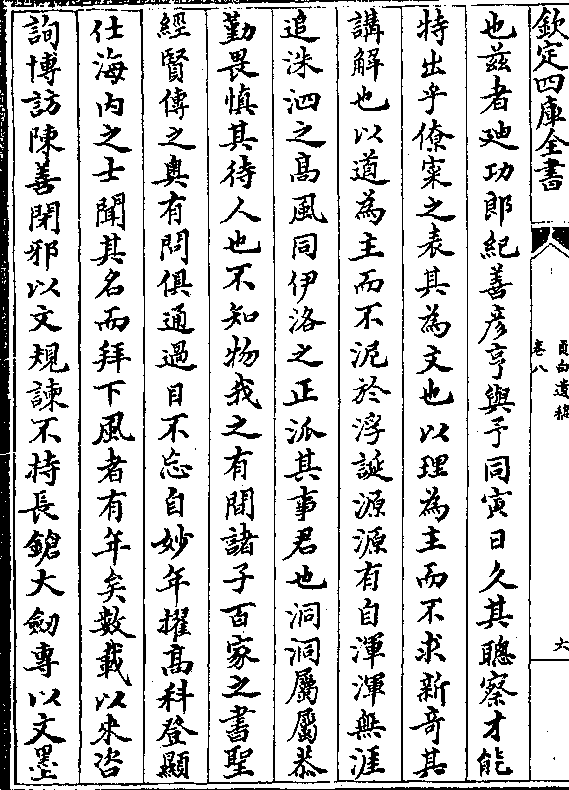 欽定四庫全書
貞白遺稿
卷八
六
也兹者廸功郎紀善彦亨與予同寅日久其聰察才能
特出乎僚寀之表其為文也以理為主而不求新竒其
講解也以道為主而不泥於浮誕源源有自渾渾無涯
追洙泗之髙風同伊洛之正派其事君也洞洞屬屬恭
勤畏慎其待人也不知物我之有間諸子百家之書聖
經賢傳之奥有問俱通過目不忘自妙年擢髙科登顯
仕海内之士聞其名而拜下風者有年矣數載以來咨
詢博訪陳善閉邪以文規諫不持長鎗大劒専以文墨